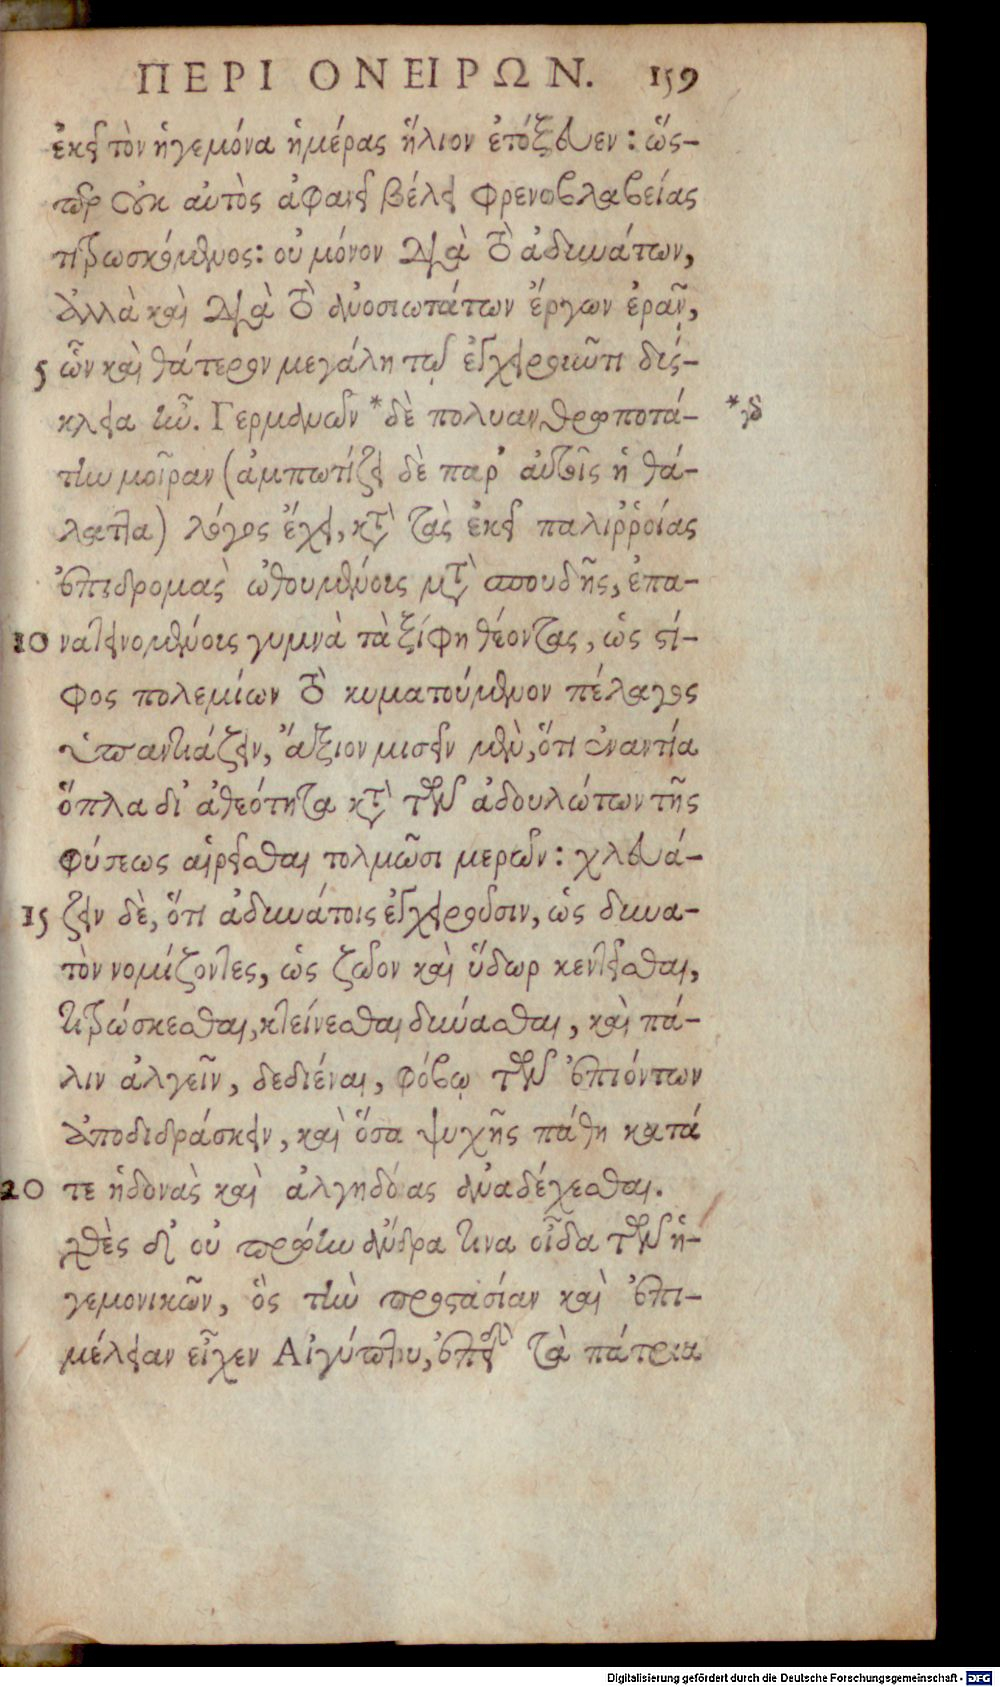 ΠΕΡΙ ΟΝΕΙΡΩΝ. 159
ἐκεῖ τὸν ἡγεμόνα ἡμέρας ἥλιον ἐτόξευεν: ὥς-
περ οὐκ αὐτὸς ἀφανεῖ βέλει φρενοβλαβείας
τιτρωσκόμενος: οὐ μόνον διὰ τὸ ἀδυνάτων,
ἀλλὰ καὶ διὰ τὸ ἀνοσιωτάτων ἔργων ἐρᾶν,
5 ὧν καὶ θάτερον μεγάλη τῷ ἐγχειροῦντι δύς-
κλεια ἦν. Γερμανῶν * δὲ πολυανθρωποτά-
* γδ
την μοῖραν (ἀμπωτίζει δὲ παρ' αὐτοῖς ἡ θά-
λαττα) λόγος ἔχει, κατὰ τὰς ἐκεῖ παλιῤῥοίας
ἐπιδρομὰς ὠθουμένοις μετὰ σπουδῆς, ἐπα-
10 νατεινομένοις γυμνὰ τὰ ξίφη θέοντας, ὡς στί-
φος πολεμίων τὸ κυματούμενον πέλαγος
ὑπαντιάζειν, ἄξιον μισεῖν μὲν, ὅτι ἐναντία
ὅπλα δι' ἀθεότητα κατὰ τῶν ἀδουλώτων τῆς
φύσεως αἱρεῖσθαι τολμῶσι μερῶν: χλευά-
15 ζειν δὲ, ὅτι ἀδυνάτοις ἐγχειροῦσιν, ὡς δυνα-
τὸν νομίζοντες, ὡς ζῶον καὶ ὕδωρ κεντεῖσθαι,
τιτρώσκεσθαι, κτείνεσθαι δύνασθαι, καὶ πά-
λιν ἀλγεῖν, δεδιέναι, φόβῳ τῶν ἐπιόντων
ἀποδιδράσκειν, καὶ ὅσα ψυχῆς πάθη κατά
20 τε ἡδονὰς καὶ ἀλγηδόας ἀναδέχεσθαι.
χθὲς δ' οὐ πρώην ἄνδρα τινα οἶδα τῶν ἡ-
γεμονικῶν, ὃς τὴν προστασίαν καὶ ἐπι-
μέλειαν εἶχεν Αἰγύπτου, ἐπειδὴ τὰ πάτρια
Digitalisierung gefördert durch die Deutsche Forschungsgemeinschaft - DFG